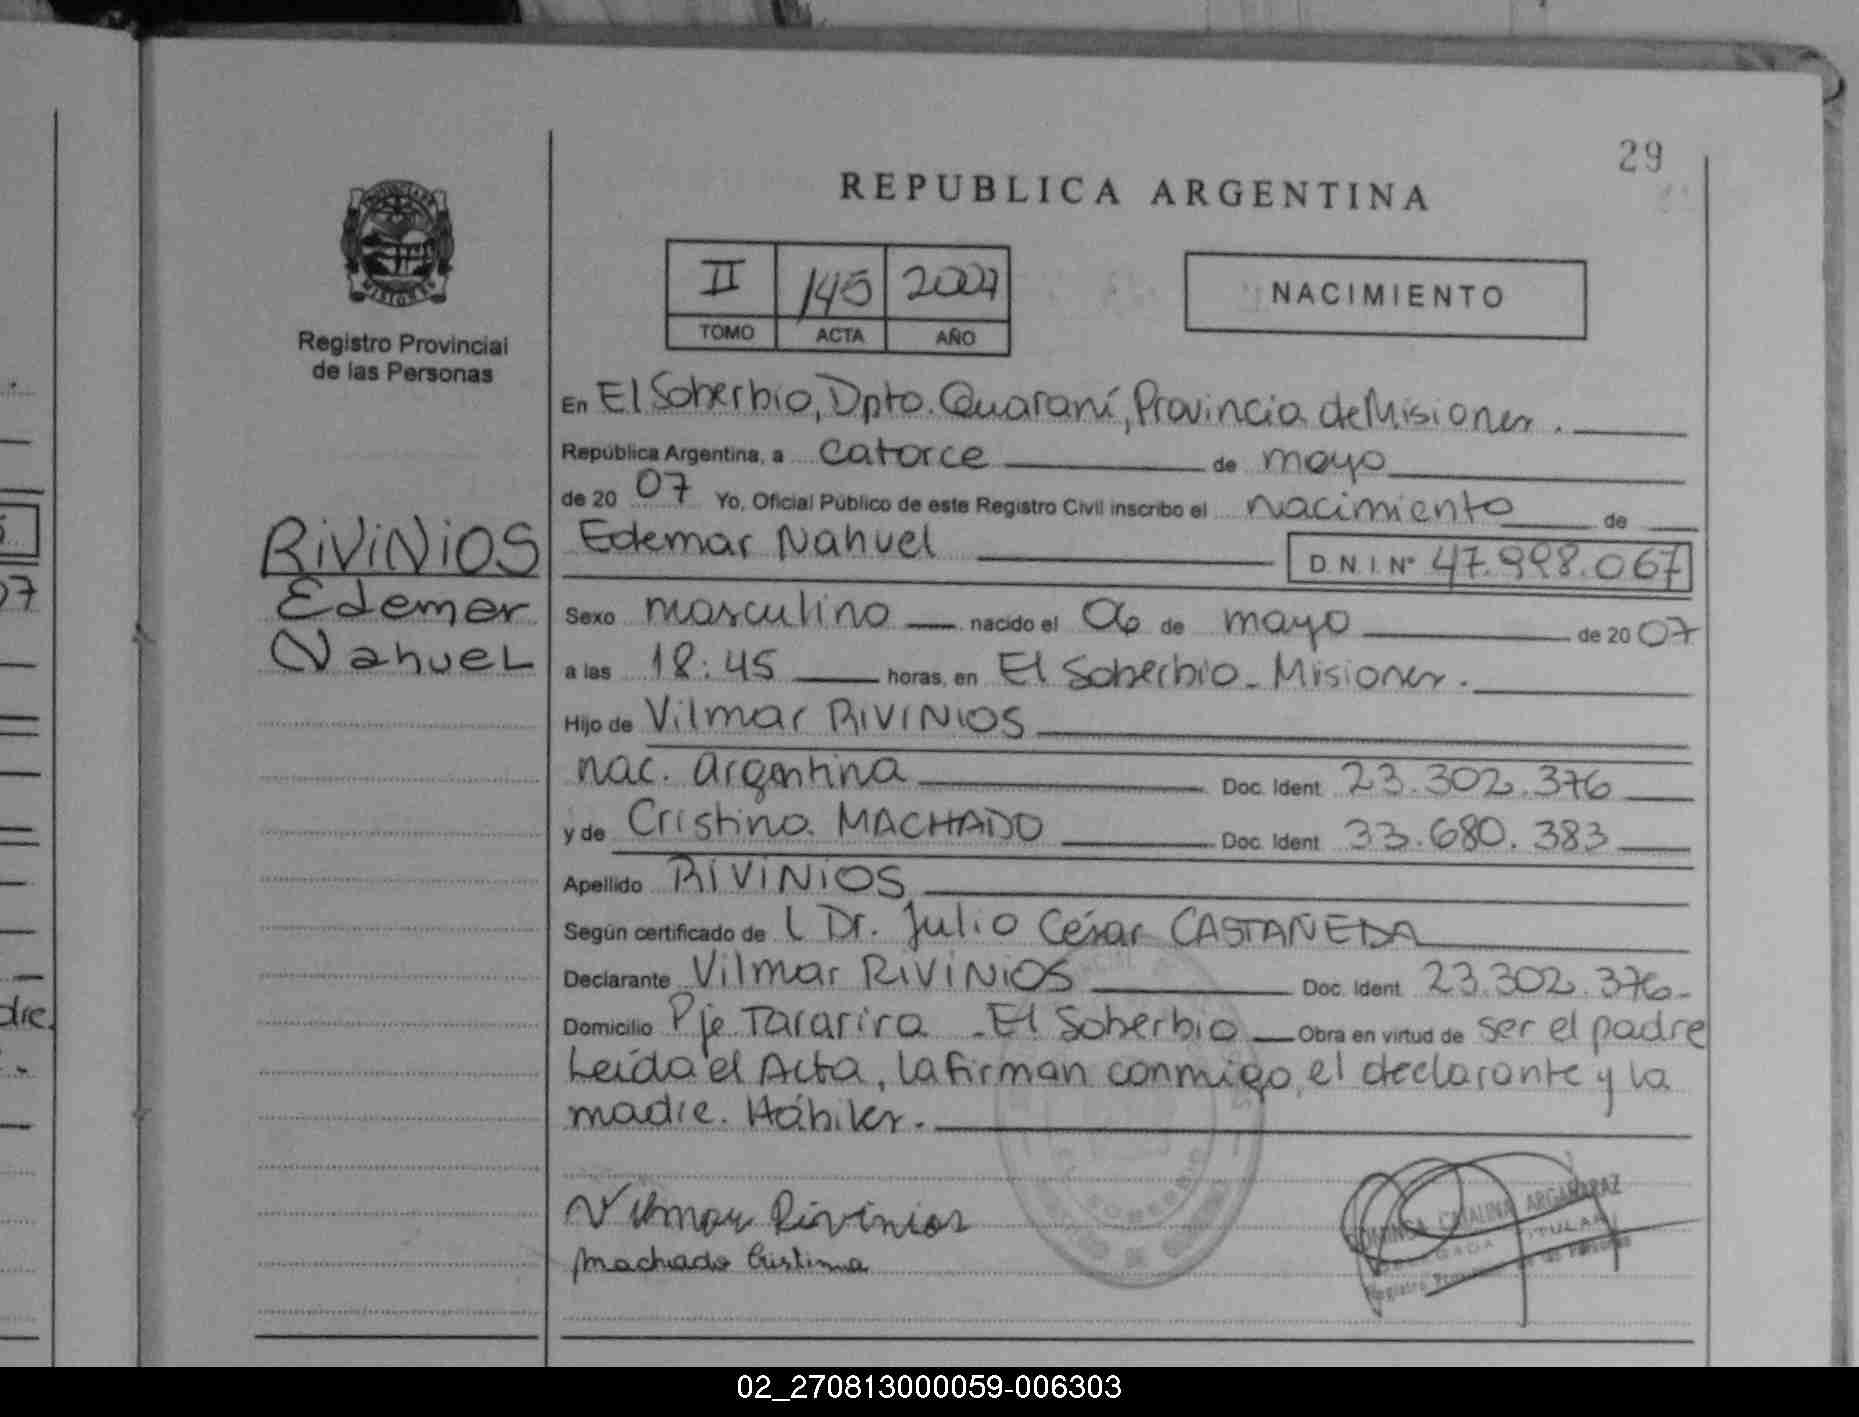 29
REPUBLICA ARGENTINA
II 145 2007
TOMO ACTA AÑO
NACIMIENTO
MISIONES
Registro Provincial
de las Personas
En El Soberbio, Dpto. Guaraní, Provincia de Misiones.
República Argentina, a catorce de mayo
de 20 07 Yo, Oficial Público de este Registro Civil inscribo el nacimiento de
RIVINIOS
Edemar
Nahuel
Edemar Nahuel D.N.I. Nº 47.998.067
Sexo masculino nacido el 06 de mayo de 20 07
a las 18:45 horas, en El Soberbio - Misiones.
Hijo de Vilmar RIVINIOS
nac. argentina Doc. Ident 23.302.376
y de Cristina MACHADO Doc. Ident 33.680.383
Apellido RIVINIOS
Según certificado de l Dr. Julio César CASTAÑEDA
Declarante Vilmar RIVINIOS Doc. Ident 23.302.376-
Domicilio Pje. Tararira - El Soberbio Obra en virtud de ser el padre
Leída el Acta, la firman conmigo, el declarante y la
madre. Hábiles.
Vilmar Rivinios
Machado Cristina
DOMINGA CATALINA ARGAÑARAZ
TITULAR
Registro Provincial de las Personas
07
dre.
02_270813000059-006303